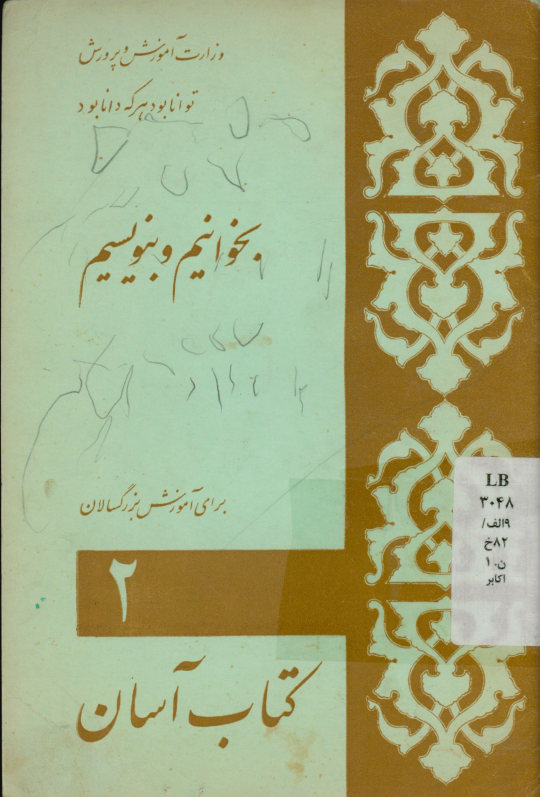 وزارت آموزش و پرورش
توانا بود هر که دانا بود
بخوانیم و بنویسیم
برای آموزش بزرگسالان
۲
کتاب آسان
LB
۳۰۴۸
/الف۹
خ۸۲
ن.۱
اکابر